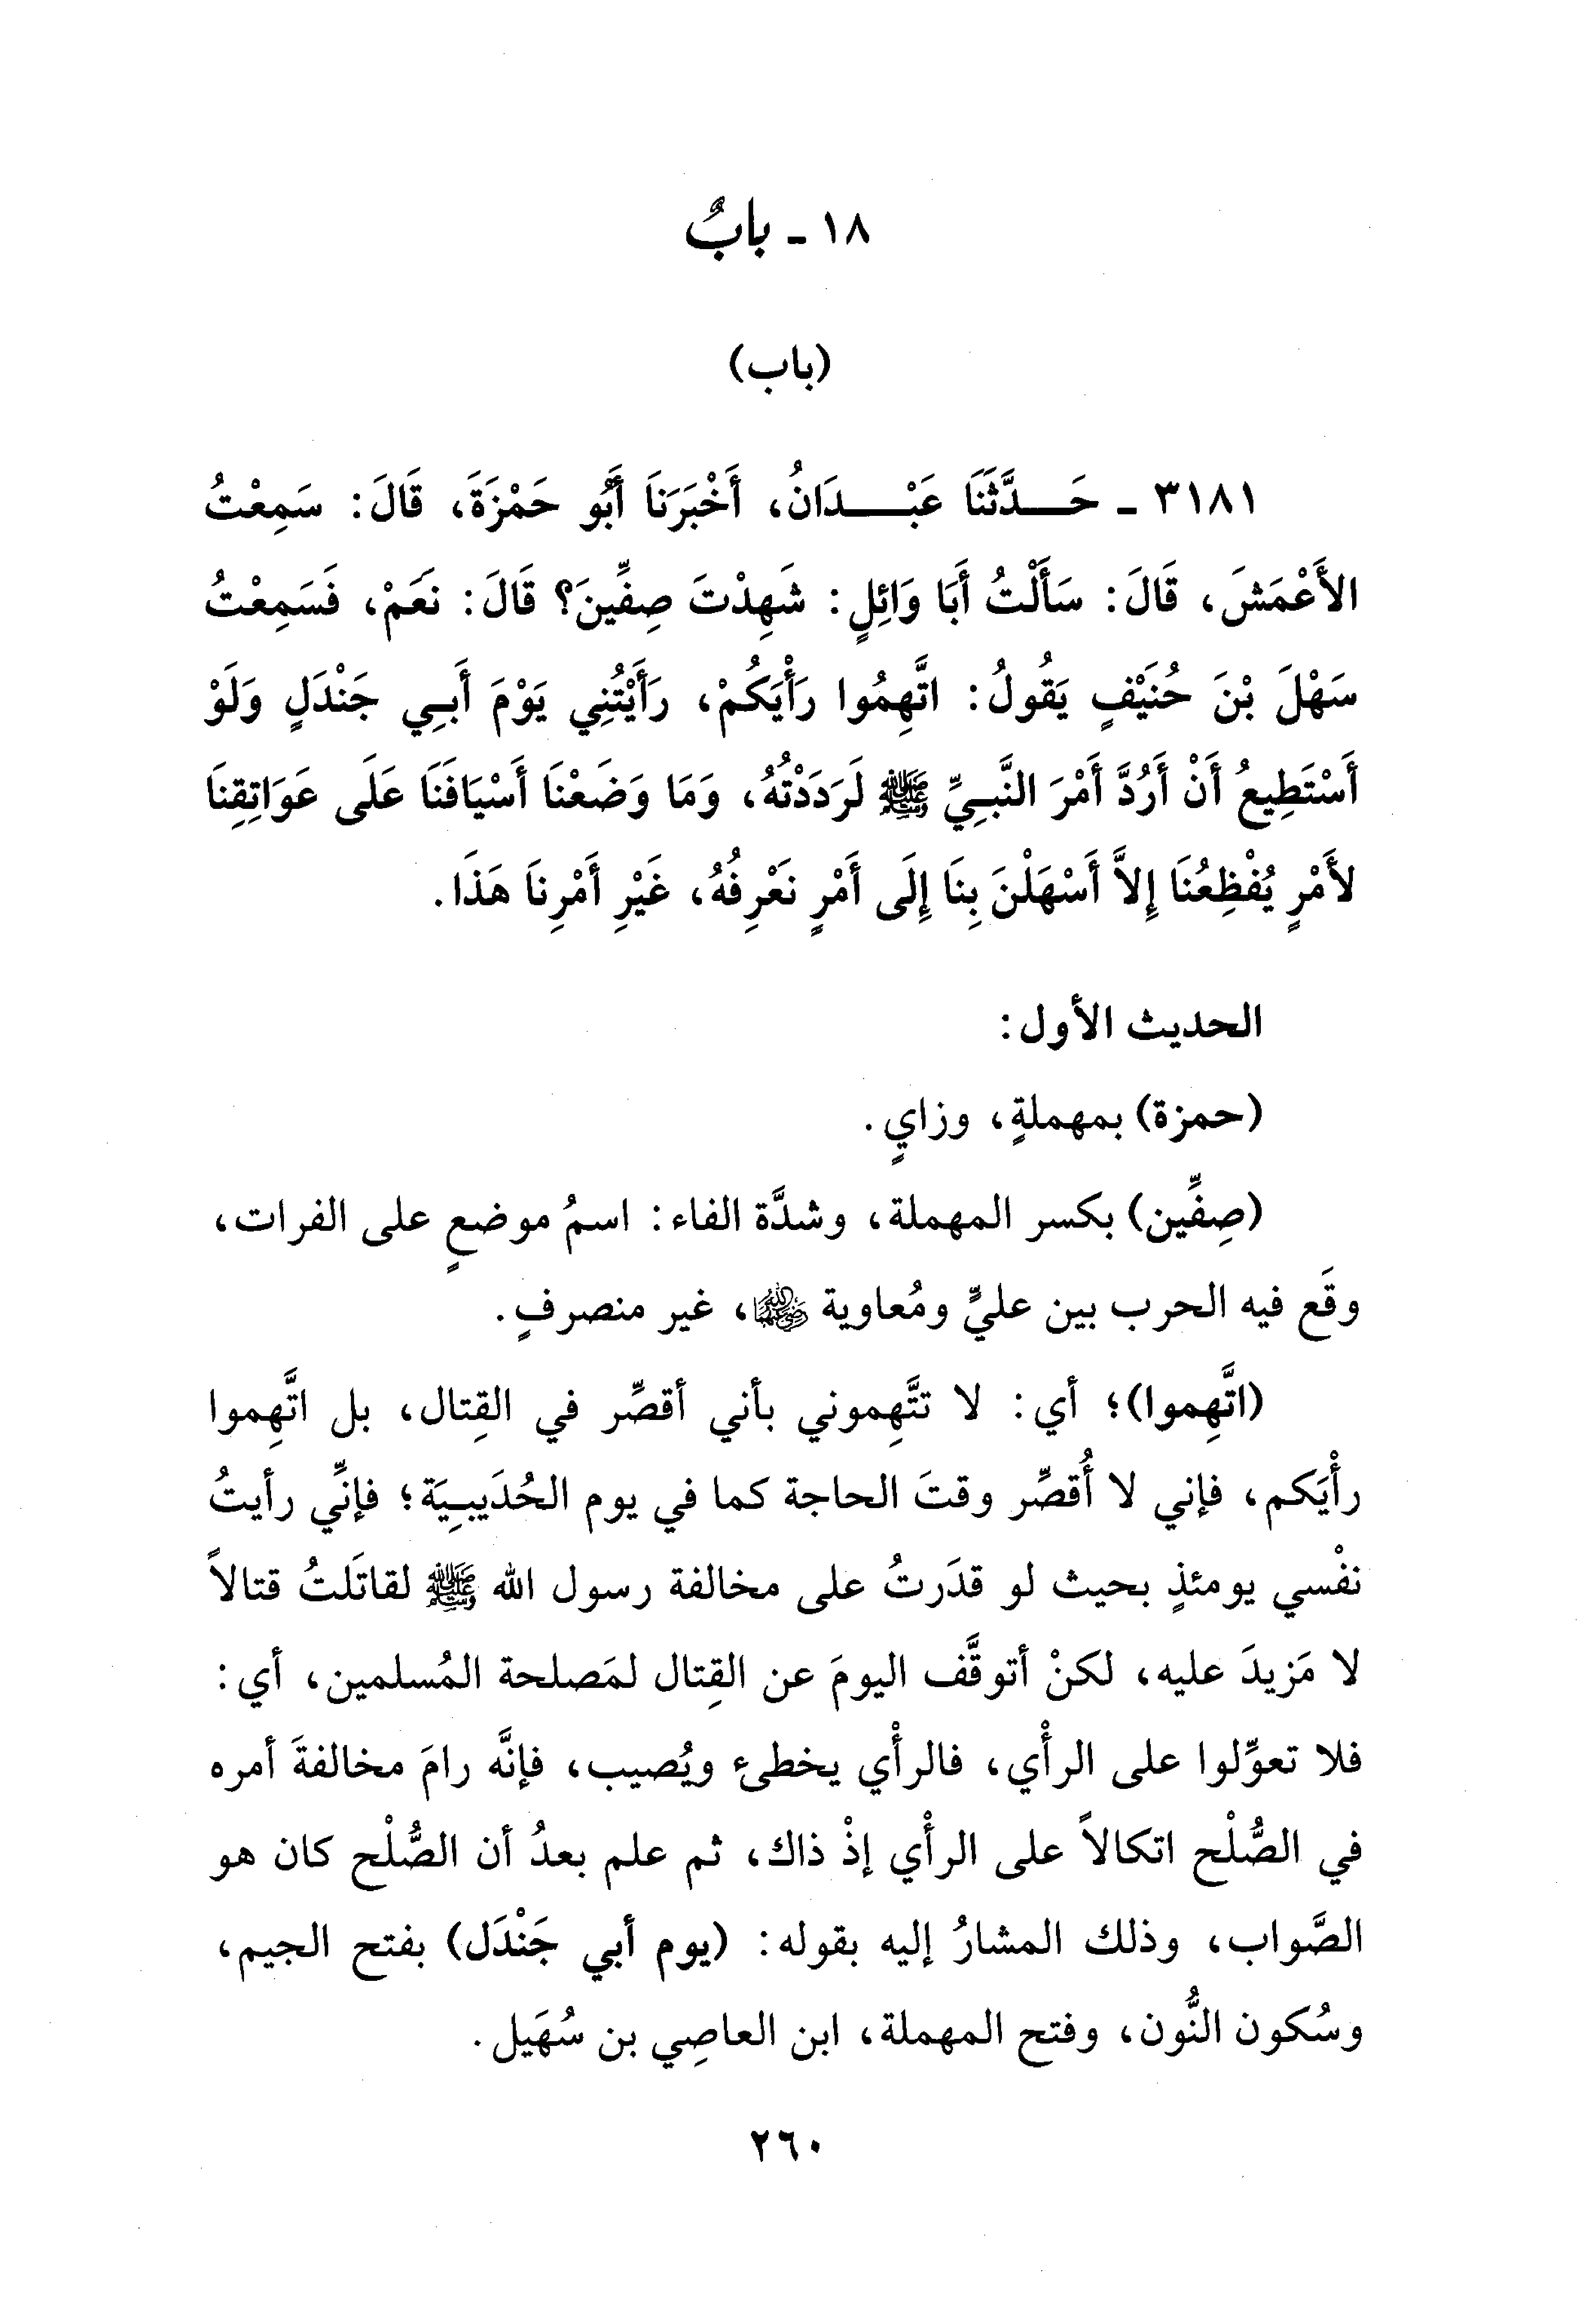 ١٨ - بابٌ
(باب)
٣١٨١ - حَدَّثَنَا عَبْدَانُ، أَخْبَرَنَا أَبُو حَمْزَةَ، قَالَ: سَمِعْتُ
الأَعْمَشَ، قَالَ: سَأَلْتُ أَبَا وَائِلٍ: شَهِدْتَ صِفِّينَ؟ قَالَ: نَعَمْ، فَسَمِعْتُ
سَهْلَ بْنَ حُنَيْفٍ يَقُولُ: اتَّهِمُوا رَأْيَكُمْ، رَأَيْتُنِي يَوْمَ أَبِي جَنْدَلٍ وَلَوْ
أَسْتَطِيعُ أَنْ أَرُدَّ أَمْرَ النَّبِيِّ ﷺ لَرَدَدْتُهُ، وَمَا وَضَعْنَا أَسْيَافَنَا عَلَى عَوَاتِقِنَا
لأَمْرٍ يُفْظِعُنَا إِلاَّ أَسْهَلْنَ بِنَا إِلَى أَمْرٍ نَعْرِفُهُ، غَيْرِ أَمْرِنَا هَذَا.
الحديث الأول:
(حمزة) بمهملةٍ، وزايٍ.
(صِفِّين) بكسر المهملة، وشدَّة الفاء: اسمُ موضعٍ على الفرات،
وقَع فيه الحرب بين عليٍّ ومُعاوية رضي الله عنهما، غير منصرفٍ.
(اتَّهِموا)؛ أي: لا تتَّهِموني بأني أقصِّر في القِتال، بل اتَّهِموا
رأْيَكم، فإني لا أُقصِّر وقتَ الحاجة كما في يوم الحُدَيبِيَة؛ فإنِّي رأيتُ
نفْسي يومئذٍ بحيث لو قدَرتُ على مخالفة رسول الله ﷺ لقاتَلتُ قتالاً
لا مَزيدَ عليه، لكنْ أتوقَّف اليومَ عن القِتال لمَصلحة المُسلمين، أي:
فلا تعوِّلوا على الرأْي، فالرأْي يخطئ ويُصيب، فإنَّه رامَ مخالفةَ أمره
في الصُّلْح اتكالاً على الرأْي إذْ ذاك، ثم علم بعدُ أن الصُّلْح كان هو
الصَّواب، وذلك المشارُ إليه بقوله: (يوم أبي جَنْدَل) بفتح الجيم،
وسُكون النُّون، وفتح المهملة، ابن العاصِي بن سُهَيل.
٢٦٠